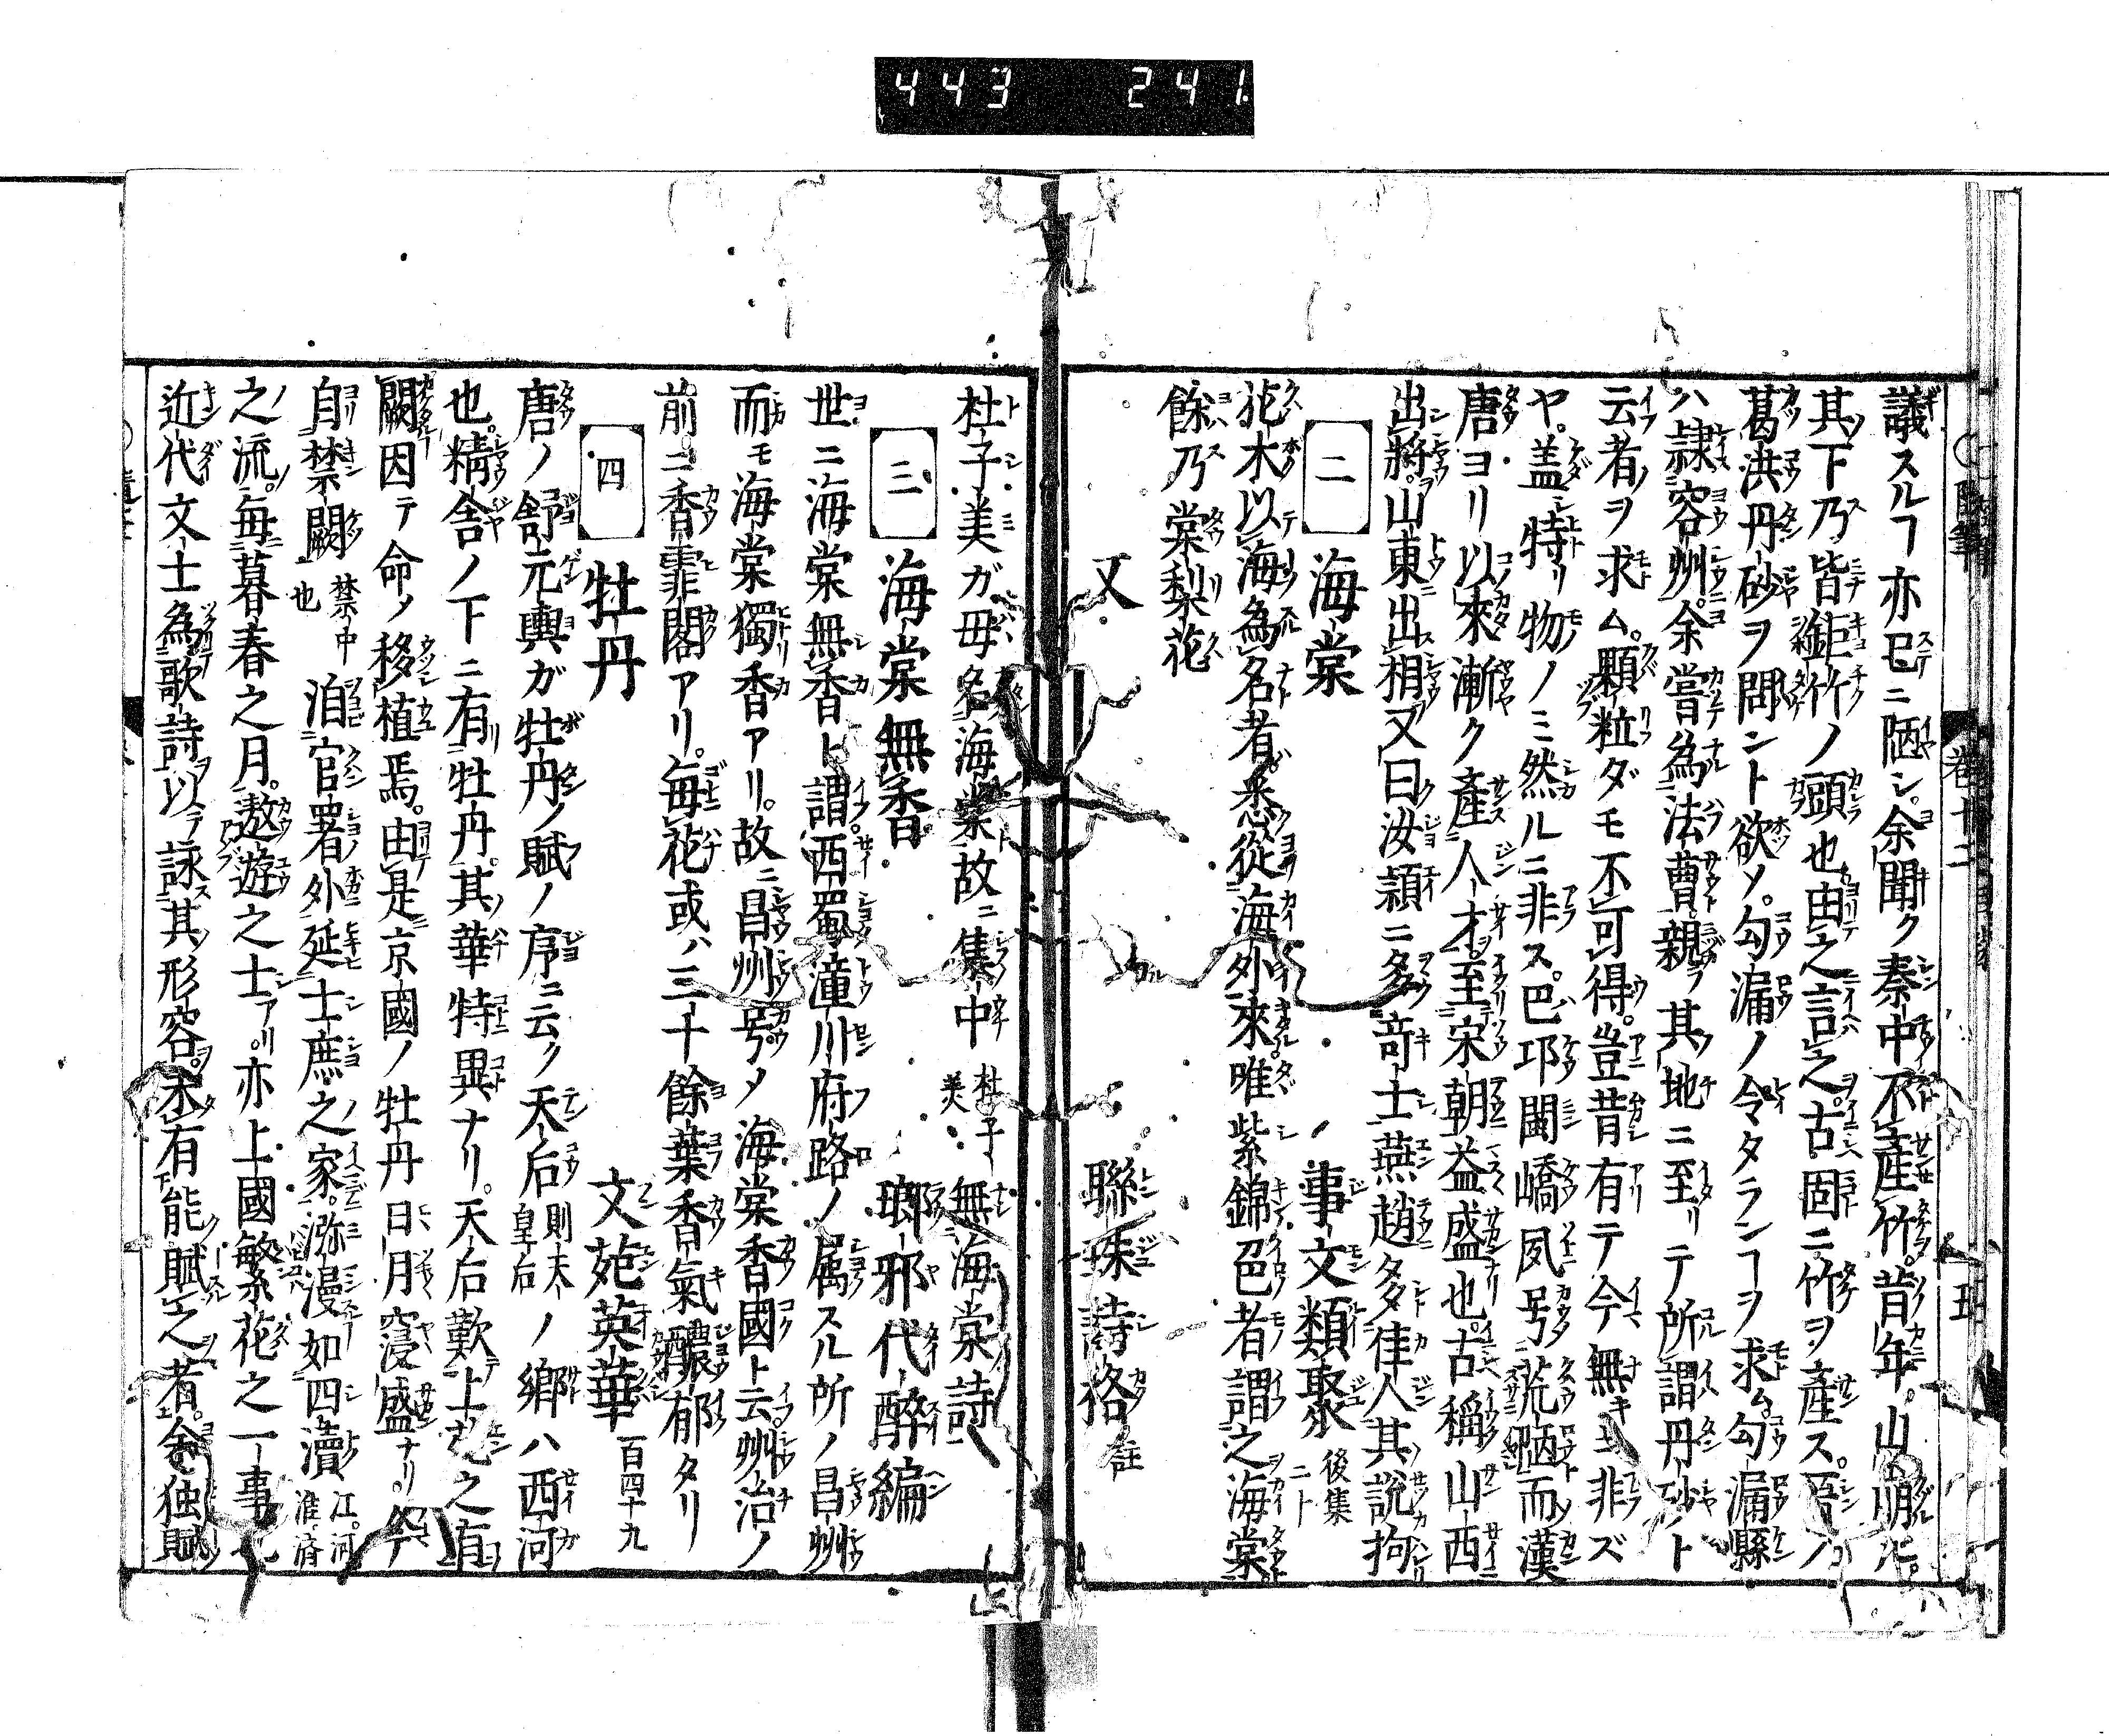 443 241
議スルヿ亦已ニ陋シ。余聞ク秦中不產竹。昔年。山崩ル。
其下乃皆鉅竹ノ頭也由之言之。古固ニ竹ヲ產ス。
葛洪丹砂ヲ問ント欲ソ。勾漏ノ令タランヿヲ求ム勾漏縣
ハ隷容州。余嘗為法曹。親ヲ其地ニ至リテ所謂丹砂ト
云者ヲ求ム。顆粒ダモ不可得。豈昔有テ今無キニ非ズ
ヤ。盖シ特リ物ノミ然ルニ非ス。巴邛閩嶠夙号荒陋而漢
唐ヨリ以來漸ク產人才。至宋朝益盛也。古稱山西
出將。山東出相又曰汝潁ニ多奇士燕趙多佳人其說拘
二 海棠 事文類聚 後集 二十
花木以海為名者悉從海外來唯紫錦色者謂之海棠
餘乃棠梨花
又 聯珠詩格 註
杜子美ガ母名海棠故ニ集中 杜子美 無海棠詩
三 海棠無香 瑯邪代醉編
世ニ海棠無香ト謂。西蜀潼川府路ノ属スル所ノ昌州
而モ海棠獨香アリ。故ニ昌州号メ海棠香國ト云。州治ノ
前ニ香霏閣アリ。每花或ハ三十餘葉香氣醲郁タリ
四 牡丹 文苑英華 百四十九
唐ノ舒元輿ガ牡丹ノ賦ノ序ニ云ク天后 則天皇后 ノ鄉ハ西河
也。精舍ノ下ニ有牡丹。其華特異ナリ。天后歎上苑之有
闕因テ命メ移植焉。由是京國ノ牡丹日月寖盛ナリ。今
自禁闕 禁中也 洎官署外延士庶之家。瀰漫如四瀆 江河淮濟
之流。每暮春之月。遨遊之士アリ。亦上國繁花之一事也
近代文士為歌詩以テ詠其形容。未有能賦之者。余独賦